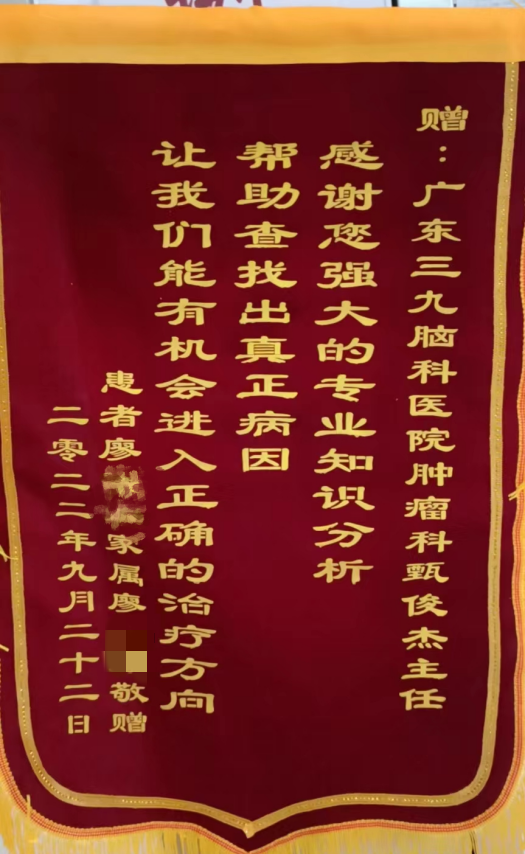 赠：广东三九脑科医院肿瘤科甄俊杰主任
感谢您强大的专业知识分析
帮助查找出真正病因
让我们能有机会进入正确的治疗方向
患者廖 家属廖 敬赠
二零二二年九月二十二日